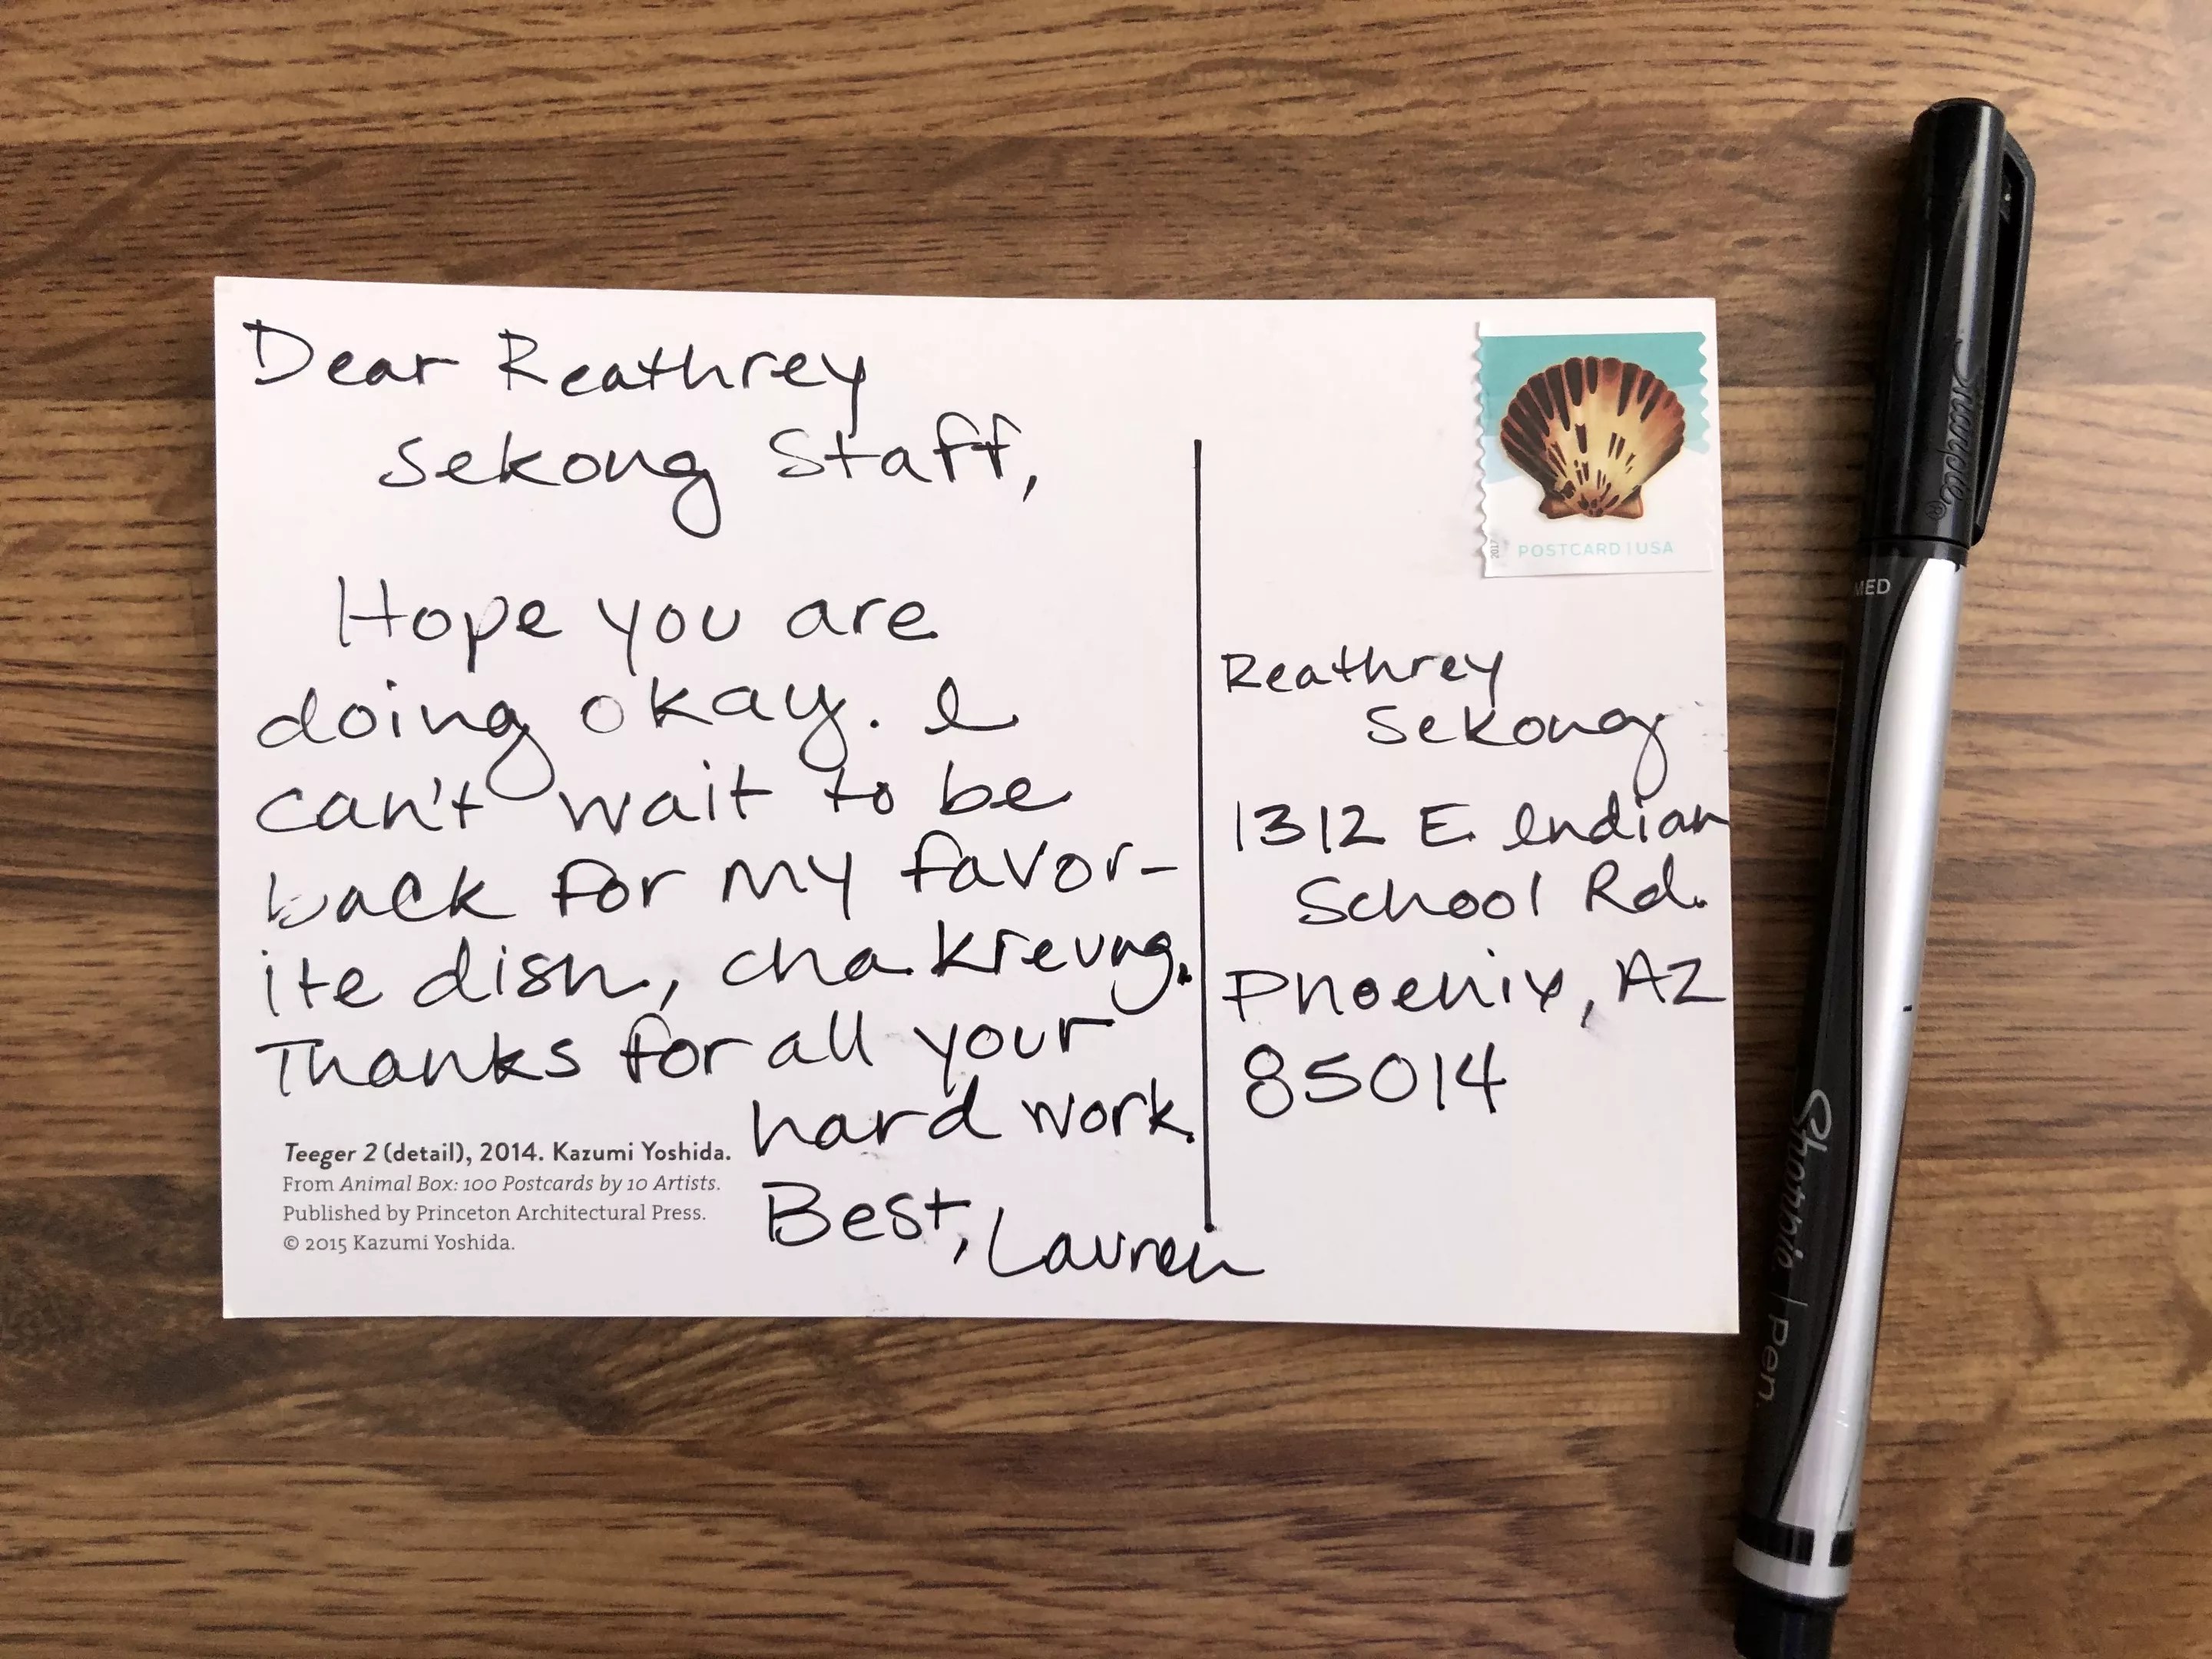 Dear Reathrey
Sekong Staff,
Hope you are
doing okay. I
can't wait to be
back for my favor-
ite dish, cha kreung.
Thanks for all your
hard work.
Best, Lauren
Teeger 2 (detail), 2014. Kazumi Yoshida.
From Animal Box: 100 Postcards by 10 Artists.
Published by Princeton Architectural Press.
© 2015 Kazumi Yoshida.
2017
POSTCARD | USA
Reathrey
Sekong
1312 E Indian
School Rd.
Phoenix, AZ
85014
Sharpie®
MED
Sharpie. | Pen.